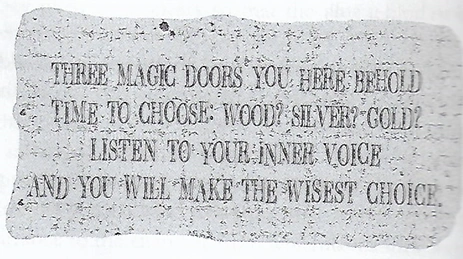 THREE MAGIC DOORS YOU HERE BEHOLD
TIME TO CHOOSE: WOOD? SILVER? GOLD?
LISTEN TO YOUR INNER VOICE
AND YOU WILL MAKE THE WISEST CHOICE.